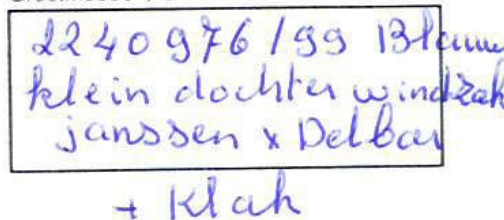 2240976/99 Blauw
klein dochter windzak
janssen x Delbar
+ Klak